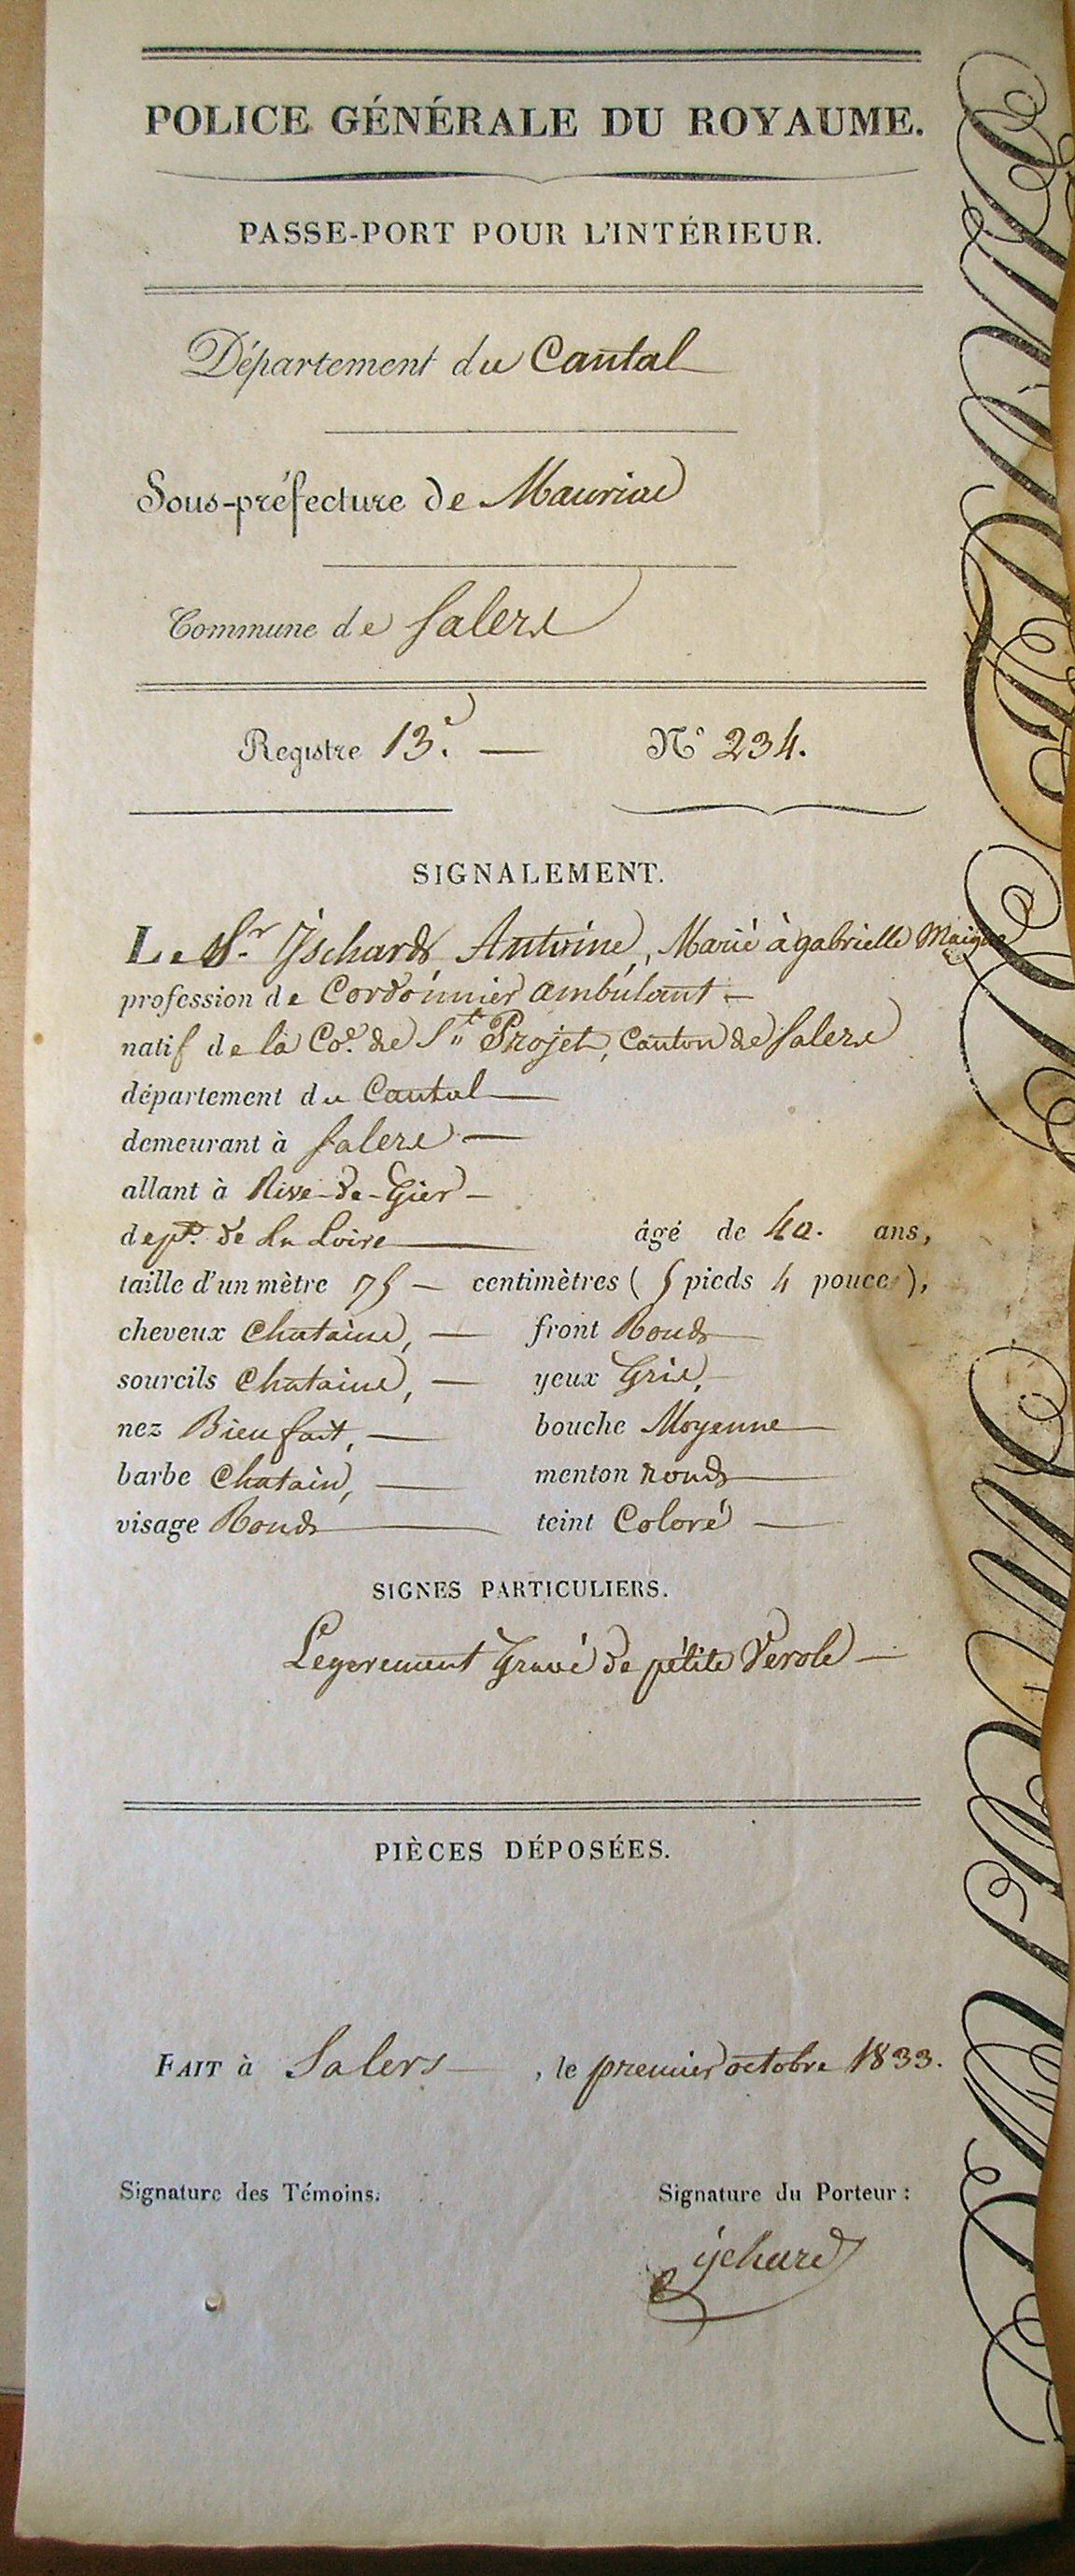 POLICE GÉNÉRALE DU ROYAUME.
PASSE-PORT POUR L'INTÉRIEUR.
Département du Cantal
Sous-préfecture de Mauriac
Commune de Salers
Registre 13.e — N° 234.
SIGNALEMENT.
Le Sr. Ischard Antoine, Marié à gabrielle
profession de Cordonnier ambulant —
natif de la Co.e de St Projet, Canton de Salers
département du Cantal
demeurant à Salers —
allant à Rive-de-Gier —
dept. de la Loire âgé de ans,
taille d'un mètre 75 — centimètres ( 5 pieds 4 pouces ),
cheveux Chatains, — front Rond
sourcils Chatains, — yeux Gris,
nez Bien fait, — bouche Moyenne
barbe Chatain, — menton rond
visage Rond teint Coloré —
SIGNES PARTICULIERS.
Legerement Gravé de pétite Verole —
PIÈCES DÉPOSÉES.
FAIT à Salers , le premier octobre 1833.
Signature des Témoins. Signature du Porteur :
ischard